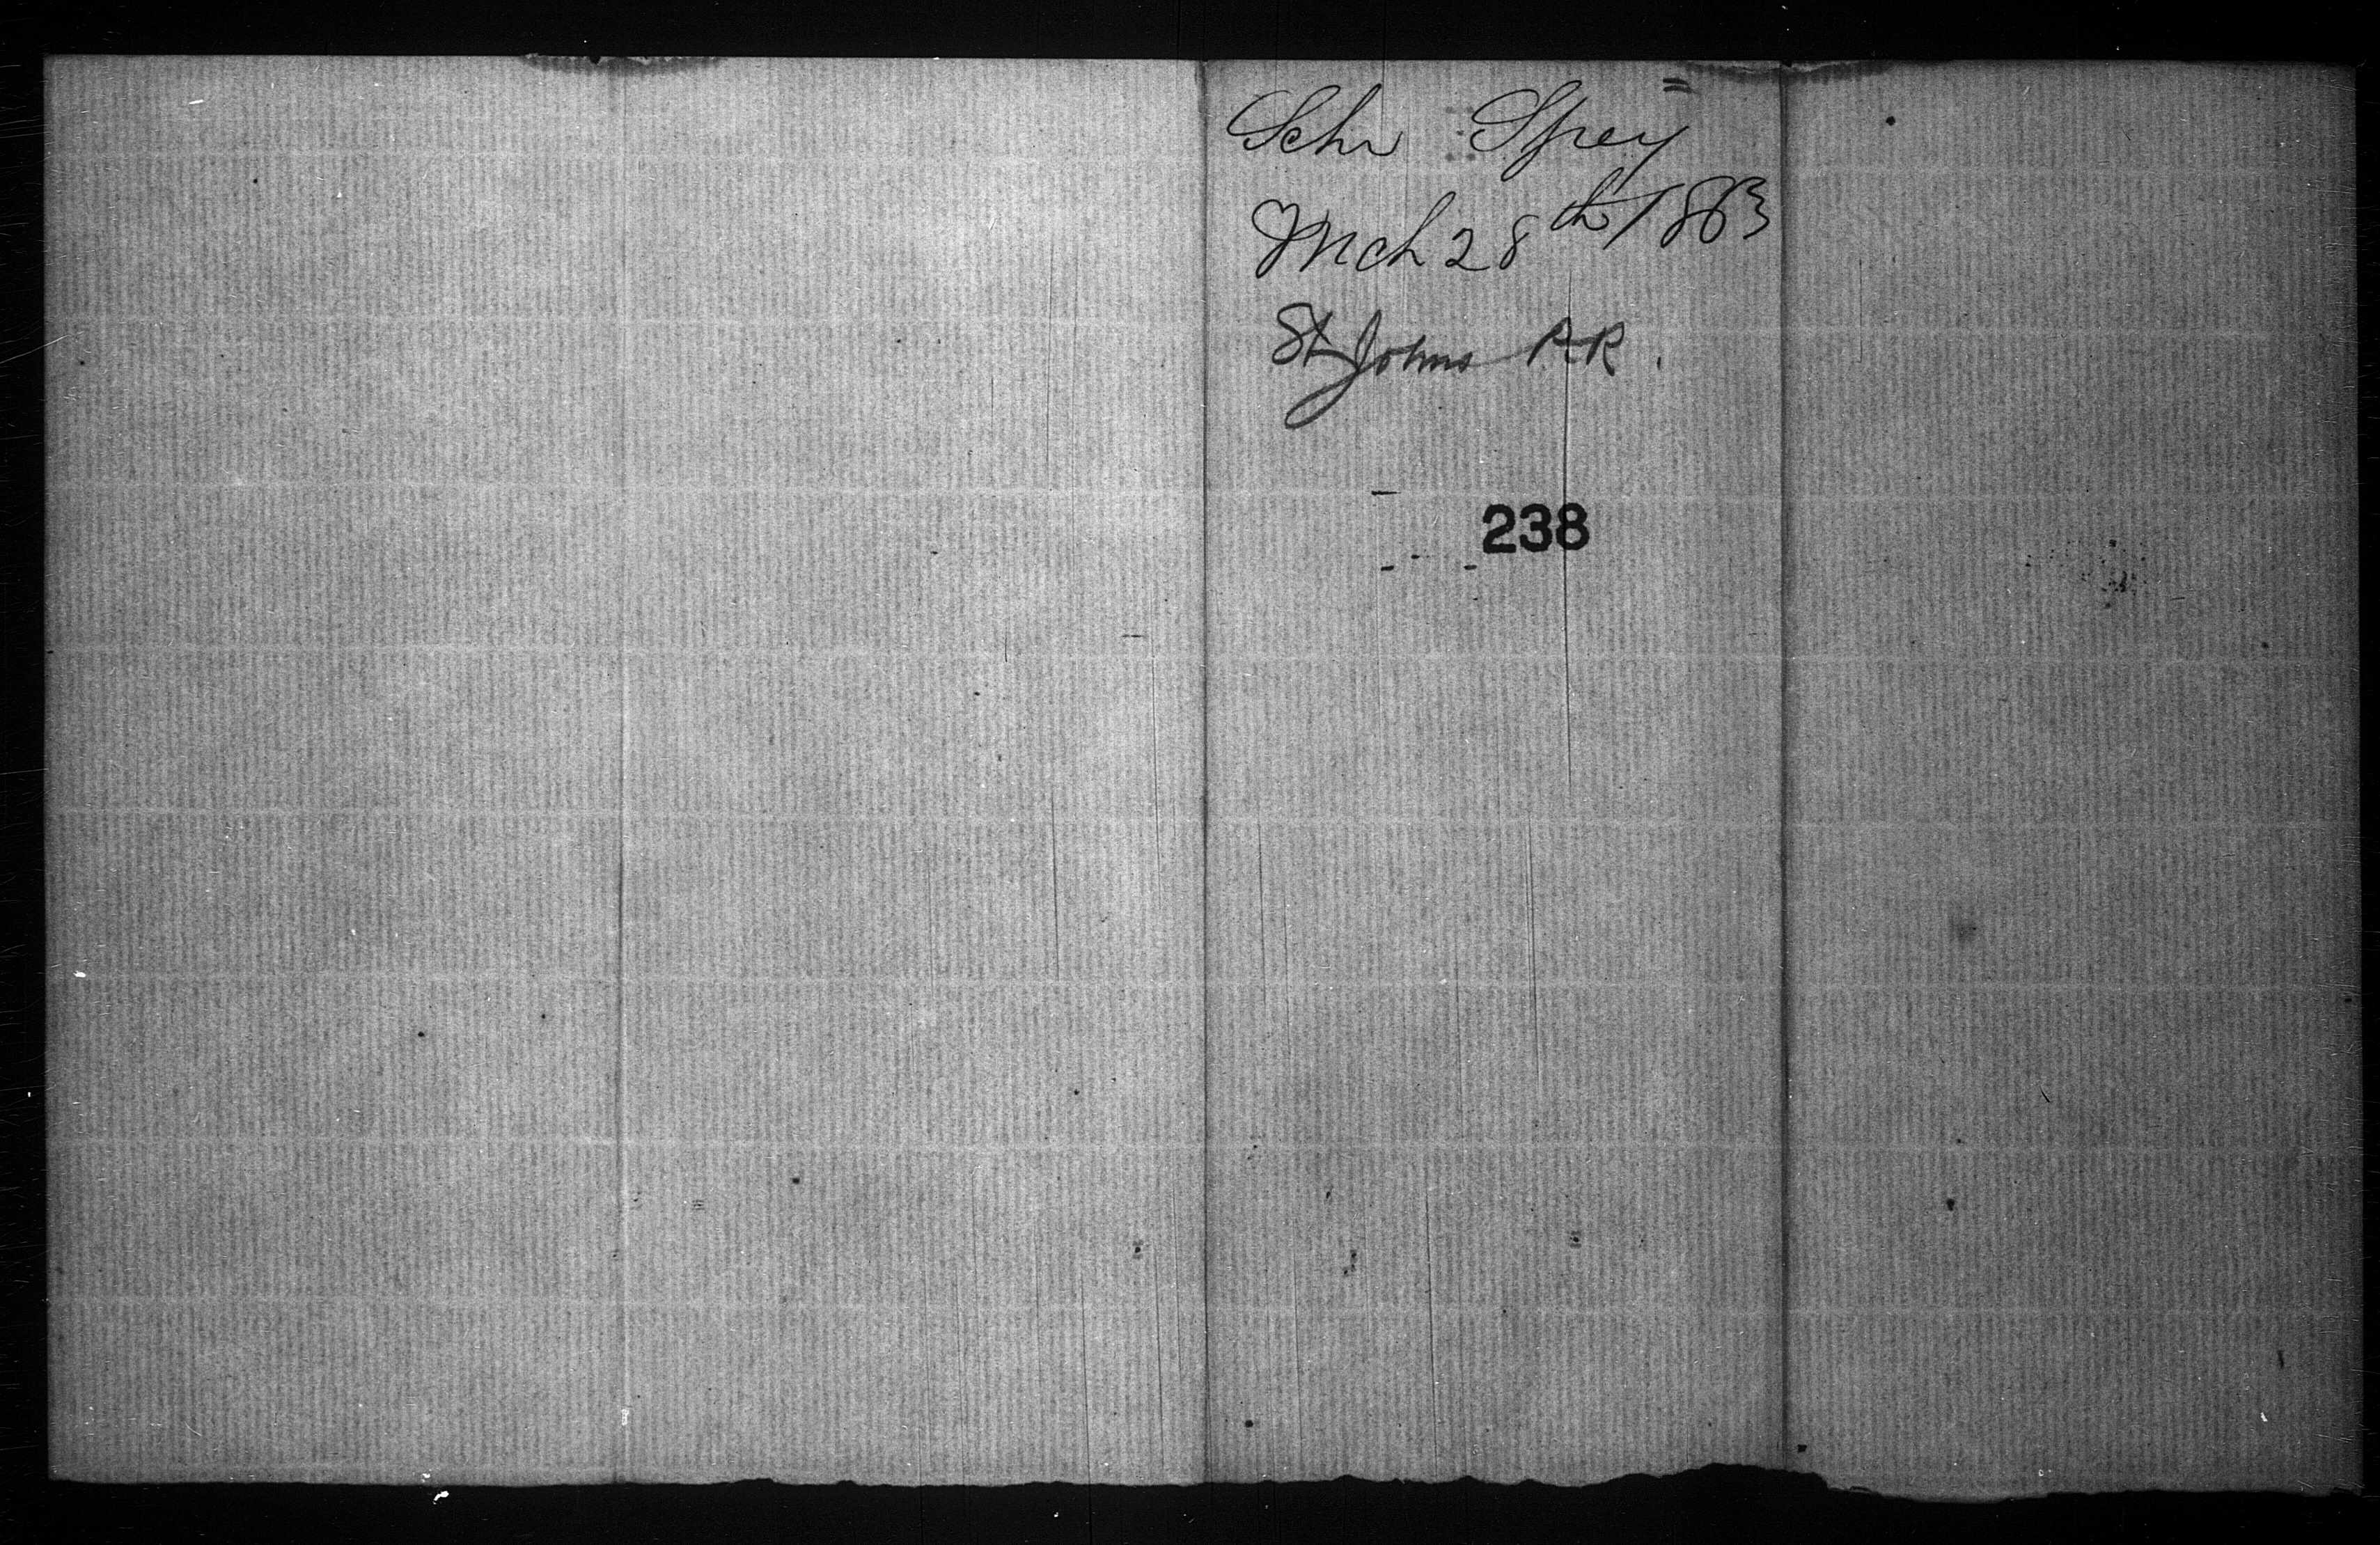 Schr Spey
Mch 28th/1863
St Johns P.R.
238